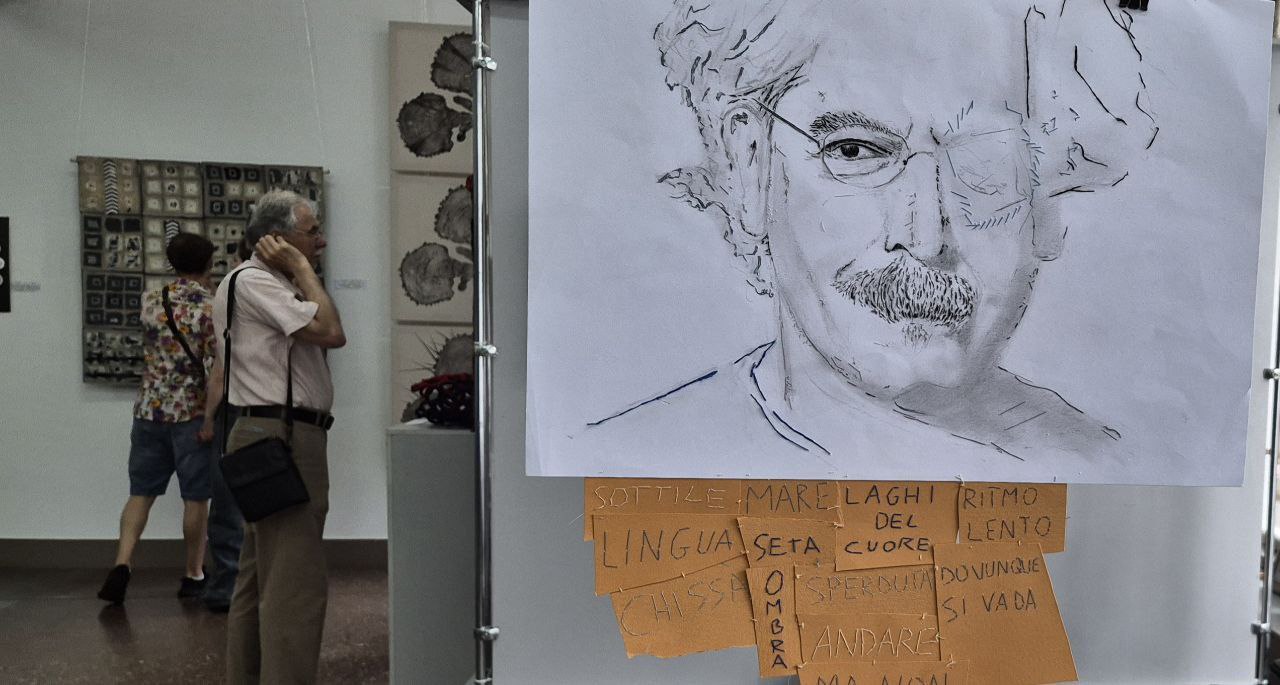 SOTTILE
MARE
LAGHI
DEL
CUORE
RITMO
LENTO
LINGUA
SETA
DOVUNQUE
SI VADA
CHISSÀ
OMBRA
SPERDUTA
ANDARE
MA NON